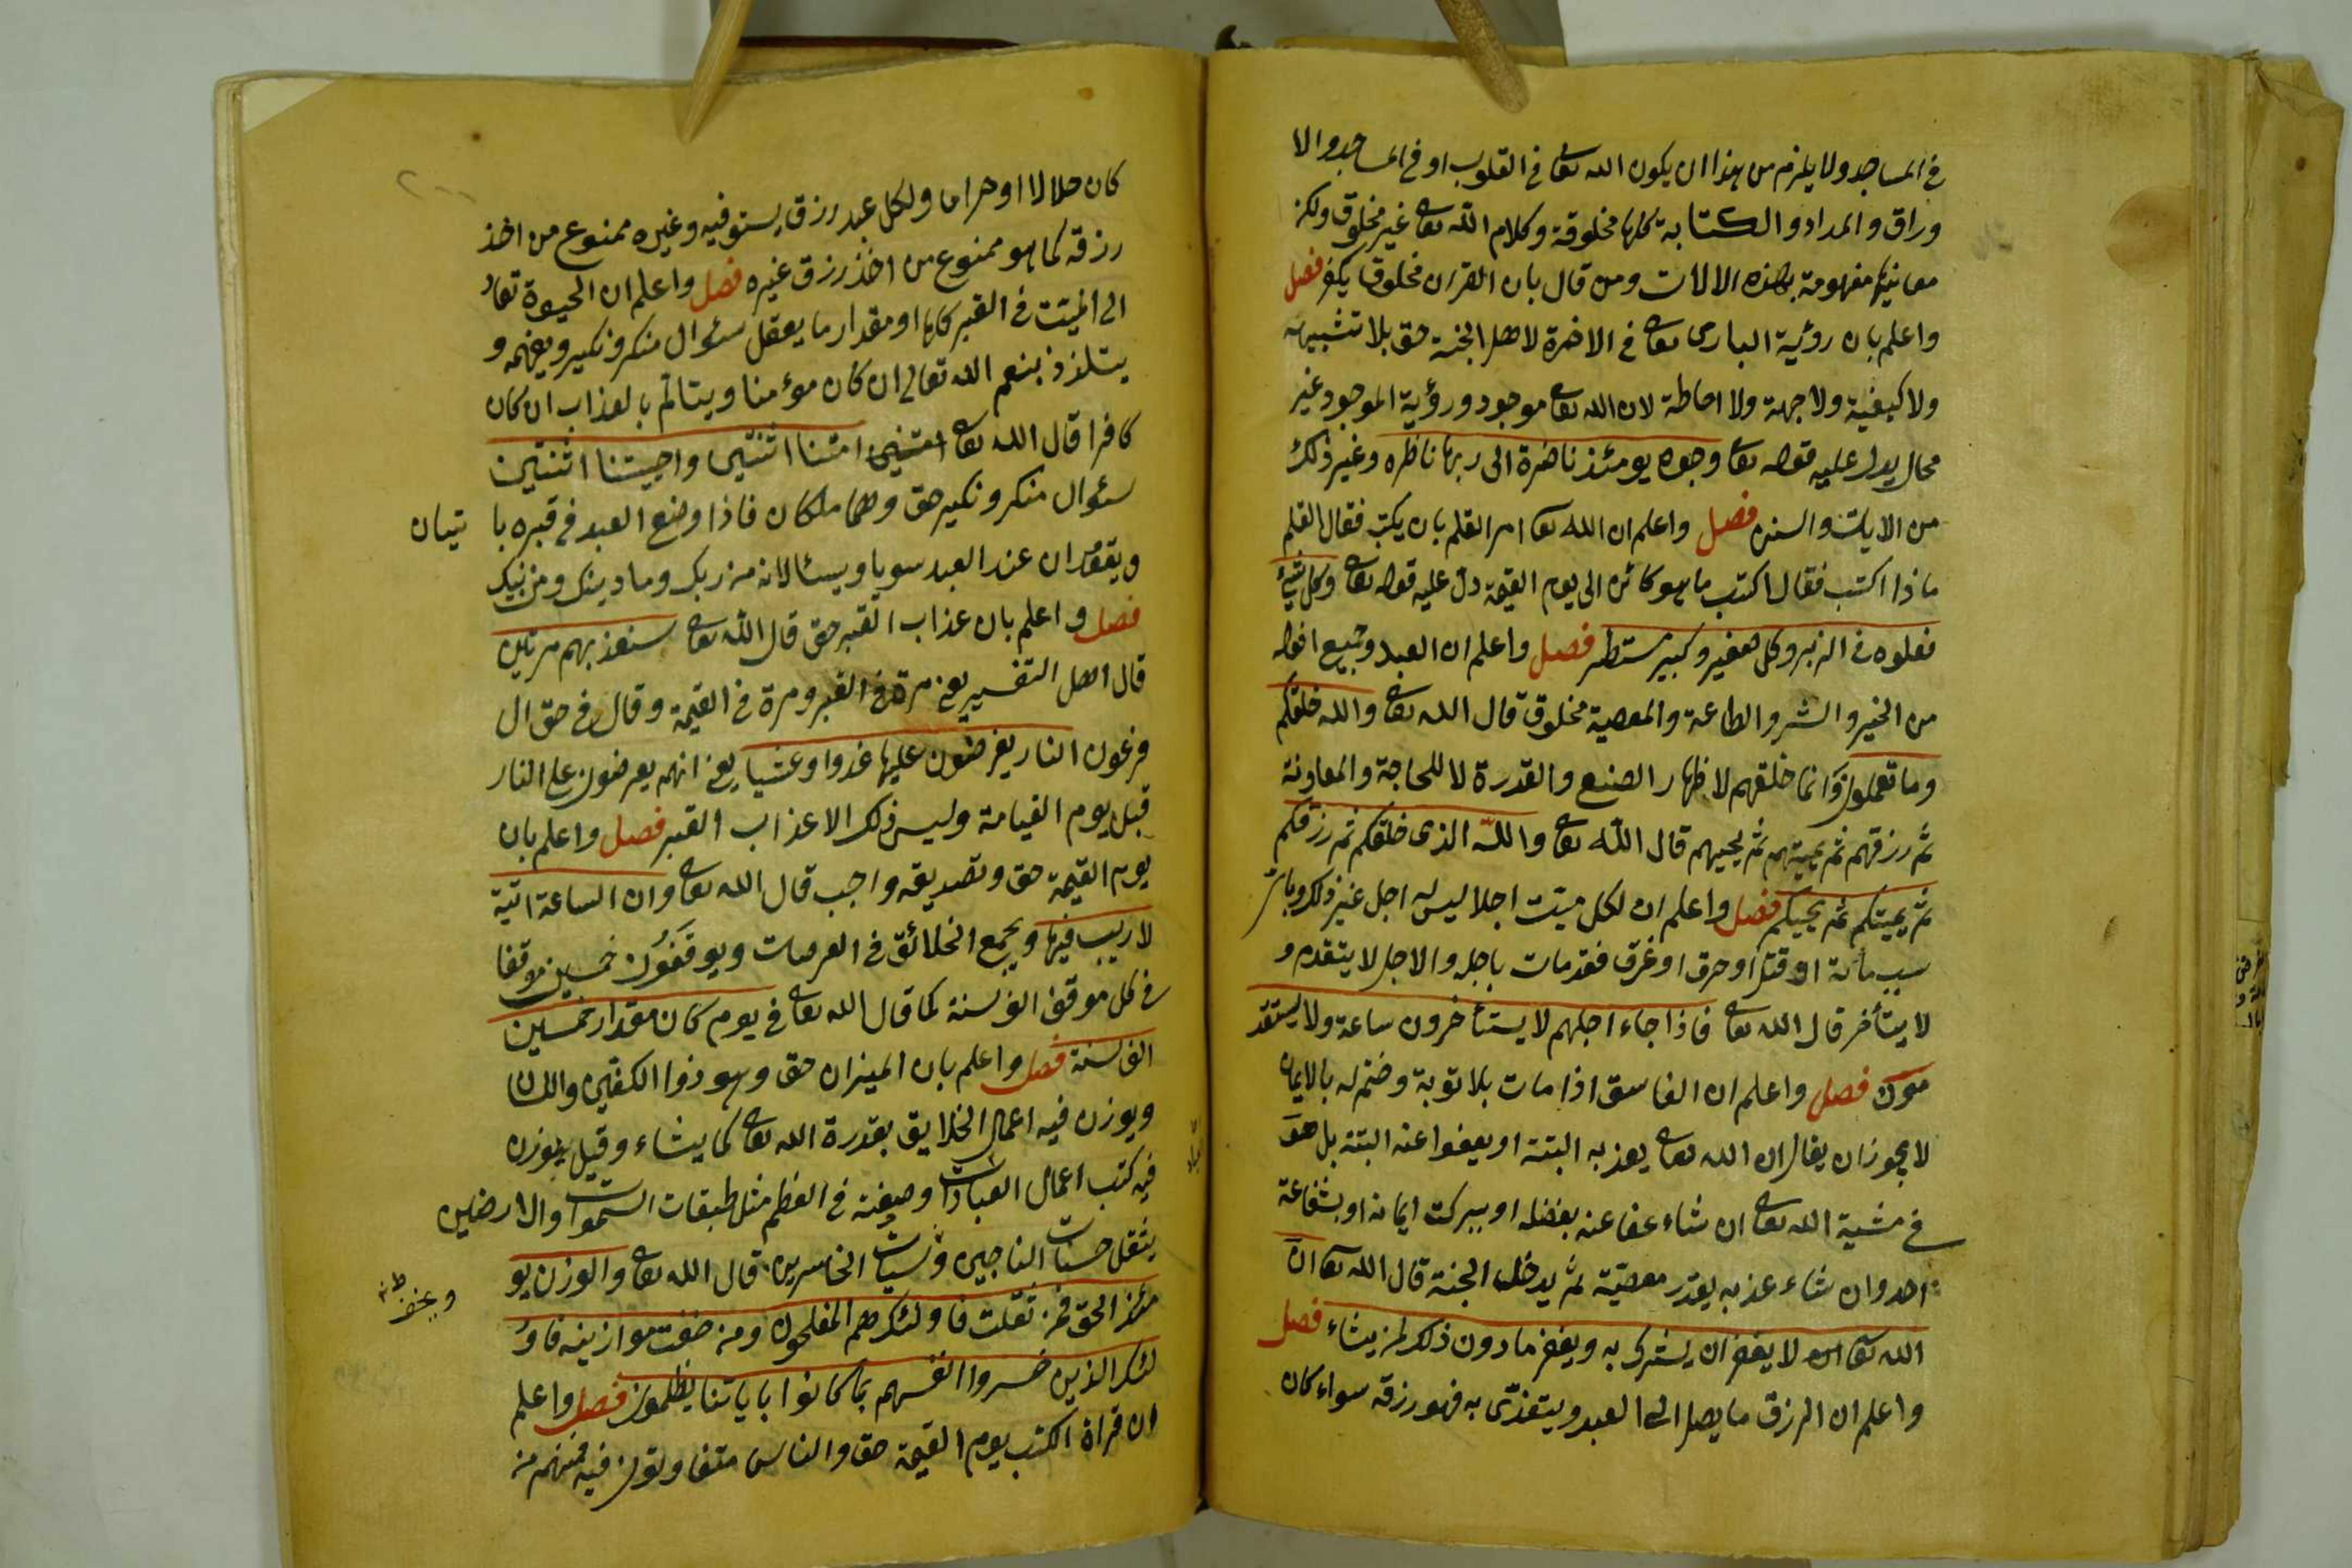 في المساجد ولا يلزم من هذا ان يكون الله تعا في القلوب او في المساجد والا
وراق والمداد والكتابة كلها مخلوقة وكلام الله تعا غير مخلوق ولكن
معانيها مفهومة بهذه الالات ومن قال بان القران مخلوق يكفر فصل
واعلم بان رؤية البارى تعا في الاخرة لاهل الجنة حق بلا تشبيه
ولا كيفية ولا جهة ولا احاطة لان الله تعا موجود ورؤية الموجود غير
محال يدل عليه قوله تعا وجوه يومئذ ناضرة الى ربها ناظره وغير ذلك
من الايات والسنه فصل واعلم ان الله تعا امر القلم بان يكتب فقال القلم
ماذا اكتب فقال اكتب ما هو كائن الى يوم القيمة دل عليه قوله تعا وكل شئ
فعلوه في الزبر وكل صغير وكبير مستطر فصل واعلم ان العبد وجميع افعاله
من الخير والشر والطاعة والمعصية مخلوق قال الله تعا والله خلقكم
وما تعملون وانما خلقهم لاظهار الصنع والقدرة لا للحاجة والمعاونة
ثم رزقهم ثم يميتهم ثم يحييهم قال الله تعا والله الذى خلقكم ثم رزقكم
ثم يميتكم ثم يحييكم فصل واعلم ان لكل ميت اجلا ليس له اجل غير ذلك وباى
سبب مات او قتل او حرق او غرق فقد مات باجله والاجل لا يتقدم و
لا يتأخر قال الله تعا فاذا جاء اجلهم لا يستأخرون ساعة ولا يستقد
مون فصل واعلم ان الفاسق اذا مات بلا توبة وختم له بالايمان
لا يجوز ان يقال ان الله تعا يعذبه البتة او يعفوا عنه البتة بل هو
في مشية الله تعا ان شاء عفا عنه بفضله او ببركت ايمانه او بشفاعة
احد وان شاء عذبه بقدر معصيته ثم يدخله الجنة قال الله تعا ان
الله تعا لا يغفر ان يشرك به ويغفر ما دون ذلك لمن يشاء فصل
واعلم ان الرزق ما يصل الى العبد ويتغذى به فهو رزقه سواء كان
كان حلالا او حراما ولكل عبد رزق يستوفيه وغيره ممنوع من اخذ
رزقه كما هو ممنوع من اخذ رزق غيره فصل واعلم ان الحيوة تعاد
الى الميت في القبر كلها او مقدار ما يعقل سئوال منكر ونكير ويفهمه و
يتلذذ بنعم الله تعالى ان كان مؤمنا ويتالم بالعذاب ان كان
كافرا قال الله تعا امتنا اثنتين واحييتنا اثنتين
سئوال منكر ونكير حق وهما ملكان فاذا وضع العبد في قبره يا تيان
ويقعدان عند العبد سويا ويسئالانه من ربك وما دينك ومن نبيك
فصل واعلم بان عذاب القبر حق قال الله تعا سنعذبهم مرتين
قال اهل التفسير يعنى مرة في القبر ومرة في القيمة وقال في حق ال
فرعون النار يعرضون عليها غدوا وعشيا يعنى انهم يعرضون على النار
قبل يوم القيامة وليس ذلك الا عذاب القبر فصل واعلم بان
يوم القيمة حق وتصديقه واجب قال الله تعا وان الساعة اتية
لا ريب فيها ويجمع الخلائق في العرصات ويوقفون خمسين موقفا
في كل موقف الف سنة كما قال الله تعا في يوم كان مقداره خمسين
الف سنة فصل واعلم بان الميزان حق وهو ذوا الكفتين واللسان
ويوزن فيه اعمال الخلايق بقدرة الله تعا كما يشاء وقيل يوزن
فيه كتب اعمال العبادات وصفته في العظم مثل طبقات السموات والارضين
يثقل حسنات الناجين وسيئات الخاسرين قال الله تعا والوزن يو
مئذ الحق فمن ثقلت فاولئك هم المفلحون ومن خفت موازينه فاو
لئك الذين خسروا انفسهم بما كانوا باياتنا يظلمون فصل واعلم
ان قراة الكتب يوم القيمة حق والناس متفاوتون فيه فمنهم من